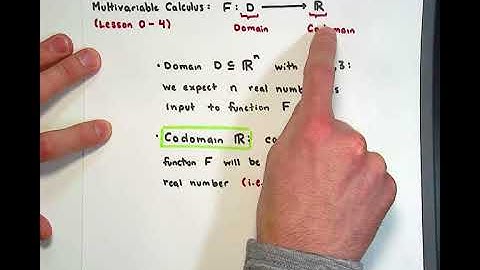 Multivariable Calculus: F: D → ℝ
(Lesson 0-4) Domain
• Domain D ⊆ ℝⁿ with 3:
we expect n real
input to function F
• Codomain ℝ:
function F will be
real number (i.e.